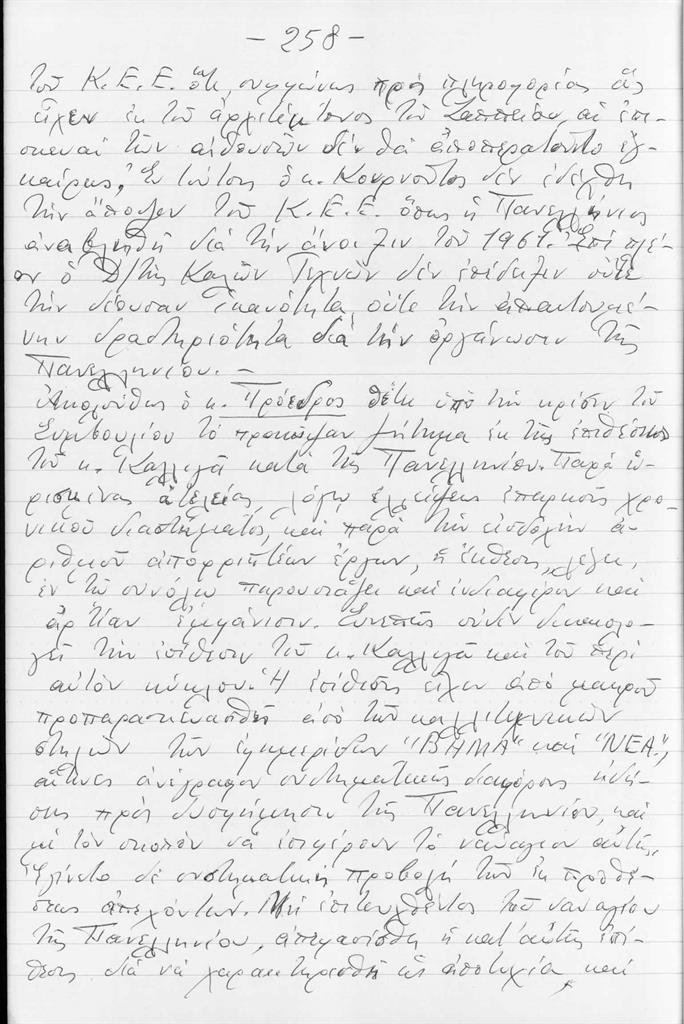 - 258 -
τοῦ Κ.Ε.Ε. ὅτι, συμφώνως πρὸς πληροφορίας ἃς
εἶχεν ἐκ τοῦ ἀρχιτέκτονος τοῦ Ζαππείου, αἱ ἐπι-
σκευαὶ τῶν αἰθουσῶν δὲν θὰ ἀποπερατοῦντο ἐγ-
καίρως. Ἐν τούτοις ὁ κ. Κουρνοῦτος δὲν ἐδέχθη
τὴν ἄποψιν τοῦ Κ.Ε.Ε. ὅπως ἡ Πανελλήνιος
ἀναβληθῇ διὰ τὴν ἄνοιξιν τοῦ 1961. Ἐπὶ πλέ-
ον ὁ Δ/τὴς Καλῶν Τεχνῶν δὲν ἐπέδειξεν οὔτε
τὴν δέουσαν ἱκανότητα, οὔτε τὴν ἀπαιτουμέ-
νην δραστηριότητα διὰ τὴν ὀργάνωσιν τῆς
Πανελληνίου. -
Ἀκολούθως ὁ κ. Πρόεδρος θέτει ὑπὸ τὴν κρίσιν τοῦ
Συμβουλίου τὸ προκῦψαν ζήτημα ἐκ τῆς ἐπιθέσεως
τοῦ κ. Καλλιγᾶ κατὰ τῆς Πανελληνίου. Παρὰ ὡ-
ρισμένας ἀτελείας, λόγῳ ἐλλείψεως ἐπαρκοῦς χρο-
νικοῦ διαστήματος, καὶ παρὰ τὴν εἰσδοχὴν ἀ-
ριθμοῦ ἀπορριπτέων ἔργων, ἡ ἔκθεσις, λέγει,
ἐν τῷ συνόλῳ παρουσιάζει καὶ ἐνδιαφέρον καὶ
ἀρτίαν ἐμφάνισιν. Συνεπῶς οὐδὲν δικαιολο-
γεῖ τὴν ἐπίθεσιν τοῦ κ. Καλλιγᾶ καὶ τοῦ περὶ
αὐτὸν κύκλου. Ἡ ἐπίθεσις εἶχεν ἀπὸ μακροῦ
προπαρασκευασθῆ ἀπὸ τῶν καλλιτεχνικῶν
στηλῶν τῶν ἐφημερίδων "ΒΗΜΑ" καὶ "ΝΕΑ",
αἵτινες ἀνέγραφον συστηματικῶς διαφόρους εἰδή-
σεις πρὸς δυσφήμησιν τῆς Πανελληνίου, καὶ
μὲ τὸν σκοπὸν νὰ ἐπιφέρουν τὸ ναυάγιον αὐτῆς.
Ἐγίνετο δὲ συστηματικὴ προβολὴ τῶν ἐκ προθέ-
σεως ἀπεχόντων. Μὴ ἐπιτευχθέντος τοῦ ναυαγίου
τῆς Πανελληνίου, ἀπεφασίσθη ἡ κατ' αὐτῆς ἐπί-
θεσις διὰ νὰ χαρακτηρισθῇ ὡς ἀποτυχία, καὶ